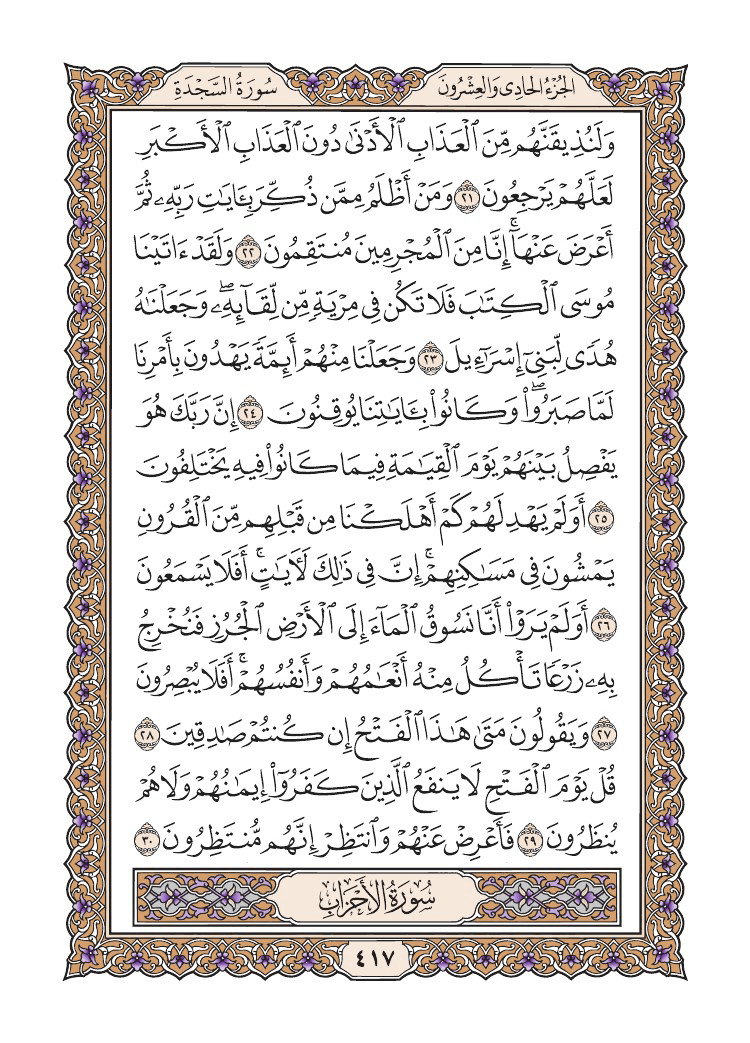 الجُزْءُ الحَادِى وَالعِشْرُونَ
سُورَةُ السَّجْدَةِ
وَلَنُذِيقَنَّهُم مِّنَ ٱلْعَذَابِ ٱلْأَدْنَىٰ دُونَ ٱلْعَذَابِ ٱلْأَكْبَرِ
لَعَلَّهُمْ يَرْجِعُونَ ٢١ وَمَنْ أَظْلَمُ مِمَّن ذُكِّرَ بِـَٔايَٰتِ رَبِّهِۦ ثُمَّ
أَعْرَضَ عَنْهَآ ۚ إِنَّا مِنَ ٱلْمُجْرِمِينَ مُنتَقِمُونَ ٢٢ وَلَقَدْ ءَاتَيْنَا
مُوسَى ٱلْكِتَٰبَ فَلَا تَكُن فِى مِرْيَةٍ مِّن لِّقَآئِهِۦ ۖ وَجَعَلْنَٰهُ
هُدًى لِّبَنِىٓ إِسْرَٰٓءِيلَ ٢٣ وَجَعَلْنَا مِنْهُمْ أَئِمَّةً يَهْدُونَ بِأَمْرِنَا
لَمَّا صَبَرُوا۟ ۖ وَكَانُوا۟ بِـَٔايَٰتِنَا يُوقِنُونَ ٢٤ إِنَّ رَبَّكَ هُوَ
يَفْصِلُ بَيْنَهُمْ يَوْمَ ٱلْقِيَٰمَةِ فِيمَا كَانُوا۟ فِيهِ يَخْتَلِفُونَ
٢٥ أَوَلَمْ يَهْدِ لَهُمْ كَمْ أَهْلَكْنَا مِن قَبْلِهِم مِّنَ ٱلْقُرُونِ
يَمْشُونَ فِى مَسَٰكِنِهِمْ ۚ إِنَّ فِى ذَٰلِكَ لَـَٔايَٰتٍ ۖ أَفَلَا يَسْمَعُونَ
٢٦ أَوَلَمْ يَرَوْا۟ أَنَّا نَسُوقُ ٱلْمَآءَ إِلَى ٱلْأَرْضِ ٱلْجُرُزِ فَنُخْرِجُ
بِهِۦ زَرْعًا تَأْكُلُ مِنْهُ أَنْعَٰمُهُمْ وَأَنفُسُهُمْ ۚ أَفَلَا يُبْصِرُونَ
٢٧ وَيَقُولُونَ مَتَىٰ هَٰذَا ٱلْفَتْحُ إِن كُنتُمْ صَٰدِقِينَ ٢٨
قُلْ يَوْمَ ٱلْفَتْحِ لَا يَنفَعُ ٱلَّذِينَ كَفَرُوٓا۟ إِيمَٰنُهُمْ وَلَا هُمْ
يُنظَرُونَ ٢٩ فَأَعْرِضْ عَنْهُمْ وَٱنتَظِرْ إِنَّهُم مُّنتَظِرُونَ ٣٠
سُورَةُ الأَحْزَابِ
٤١٧